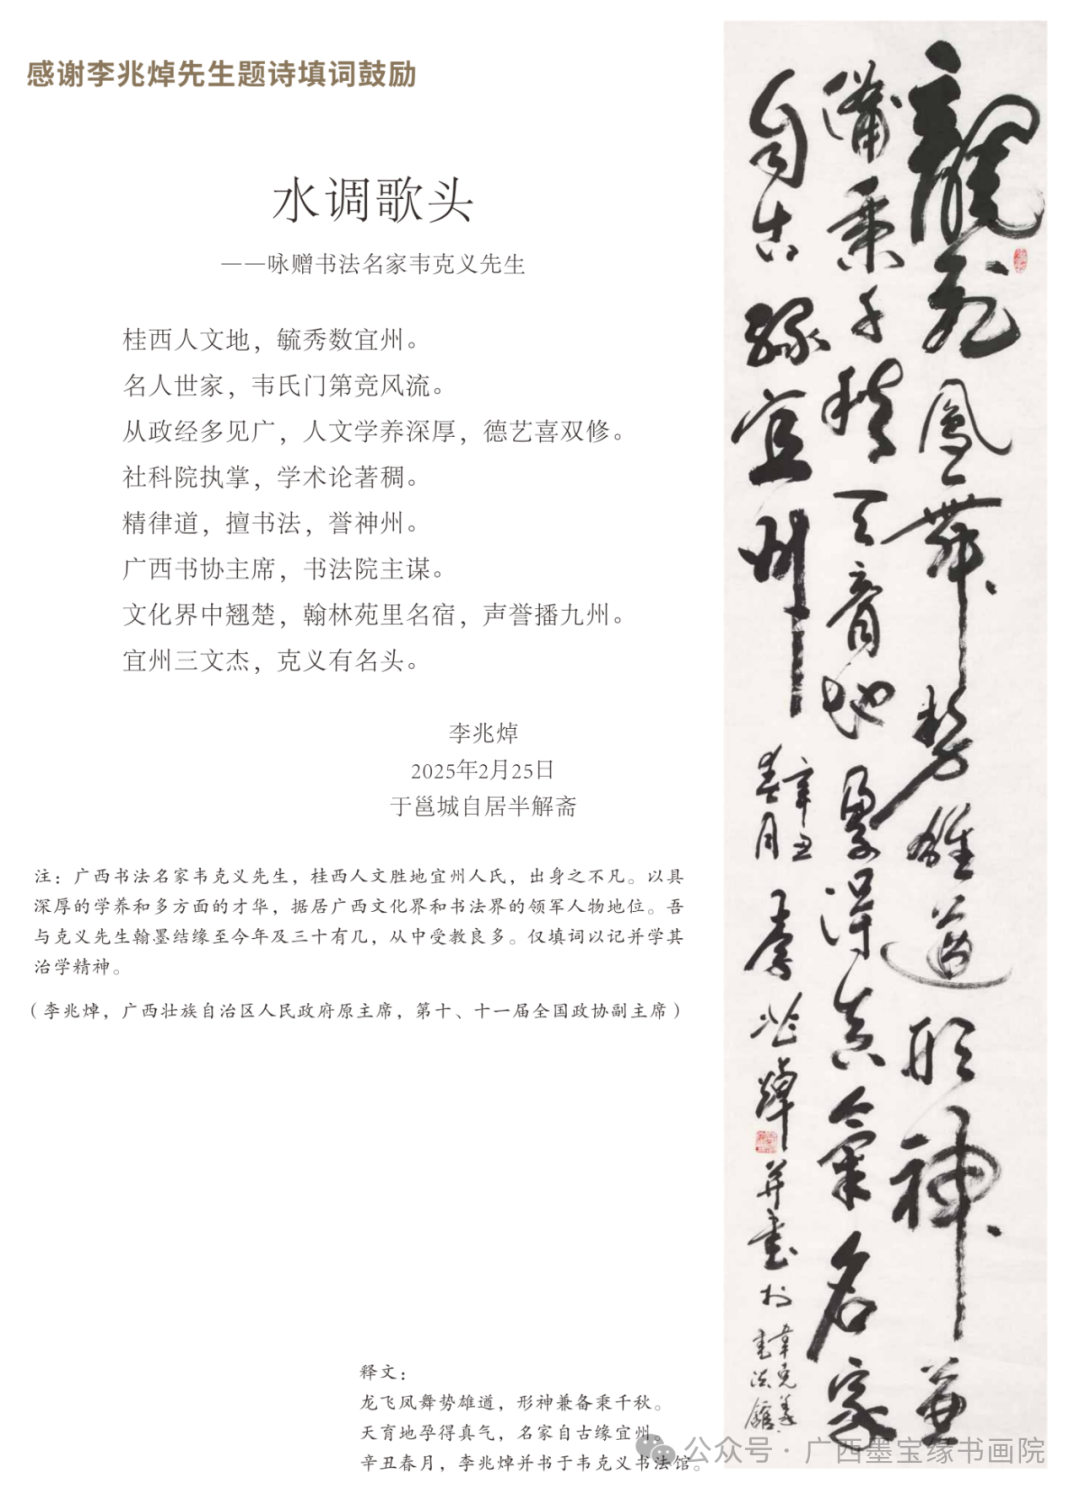 感谢李兆焯先生题诗填词鼓励
水调歌头
——咏赠书法名家韦克义先生
桂西人文地，毓秀数宜州。
名人世家，韦氏门第竞风流。
从政经多见广，人文学养深厚，德艺喜双修。
社科院执掌，学术论著稠。
精律道，擅书法，誉神州。
广西书协主席，书法院主谋。
文化界中翘楚，翰林苑里名宿，声誉播九州。
宜州三文杰，克义有名头。
李兆焯
2025年2月25日
于邕城自居半解斋
注：广西书法名家韦克义先生，桂西人文胜地宜州人氏，出身之不凡。以具
深厚的学养和多方面的才华，据居广西文化界和书法界的领军人物地位。吾
与克义先生翰墨结缘至今年及三十有几，从中受教良多。仅填词以记并学其
治学精神。
（李兆焯，广西壮族自治区人民政府原主席，第十、十一届全国政协副主席）
龍飛鳳舞勢雄遒形神兼
備秉千秋天育地孕得真氣名家
自古緣宜州
辛丑
春月
李兆焯
并書於
韋克義
書法館
释文：
龙飞凤舞势雄遒，形神兼备秉千秋。
天育地孕得真气，名家自古缘宜州
辛丑春月，李兆焯并书于韦克义书法馆。
公众号·广西墨宝缘书画院